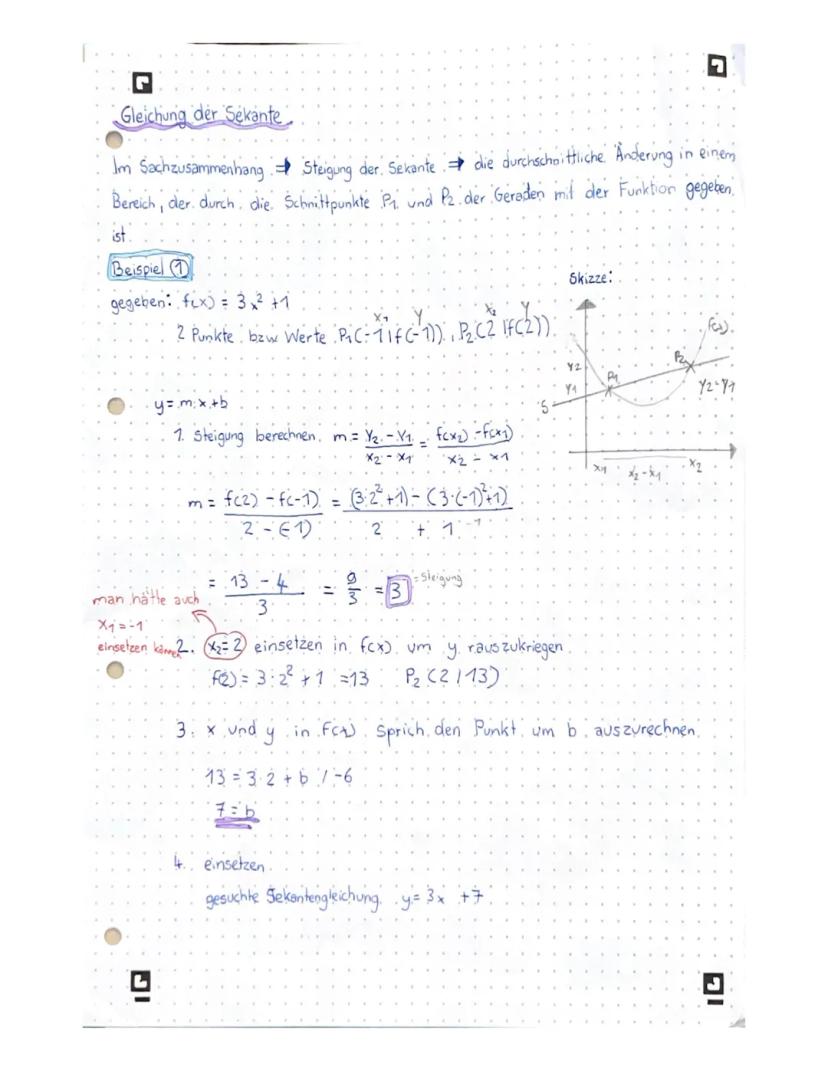 Gleichung der Sekante
Im Sachzusammenhang → Steigung der Sekante → die durchschnittliche Änderung in einem
Bereich, der durch die Schnittpunkte P1 und P2 der Geraden mit der Funktion gegeben
ist
Beispiel ①
gegeben: f(x) = 3x² +1
x1 y x2 y
2 Punkte bzw Werte P1(-1|f(-1)), P2(2|f(2))
Skizze:
f(x)
y2
y1
P1
P2
y2-y1
S
x1
x2-x1
x2
y = m·x+b
1. Steigung berechnen m = y2 - y1 / x2 - x1 = f(x2) - f(x1) / x2 - x1
m = f(2) - f(-1) / 2 - (-1) = (3·2²+1) - (3·(-1)²+1) / 2 + 1
= 13 - 4 / 3 = 9/3 = 3 = Steigung
man hätte auch
x1 = -1
einsetzen können
2. x2=2 einsetzen in f(x) um y rauszukriegen
f(2) = 3·2² + 1 =13 P2 (2/13)
3. x und y in f(x) sprich den Punkt um b auszurechnen
13 = 3·2 + b /-6
7 = b
4. einsetzen
gesuchte Sekantengleichung y= 3x +7